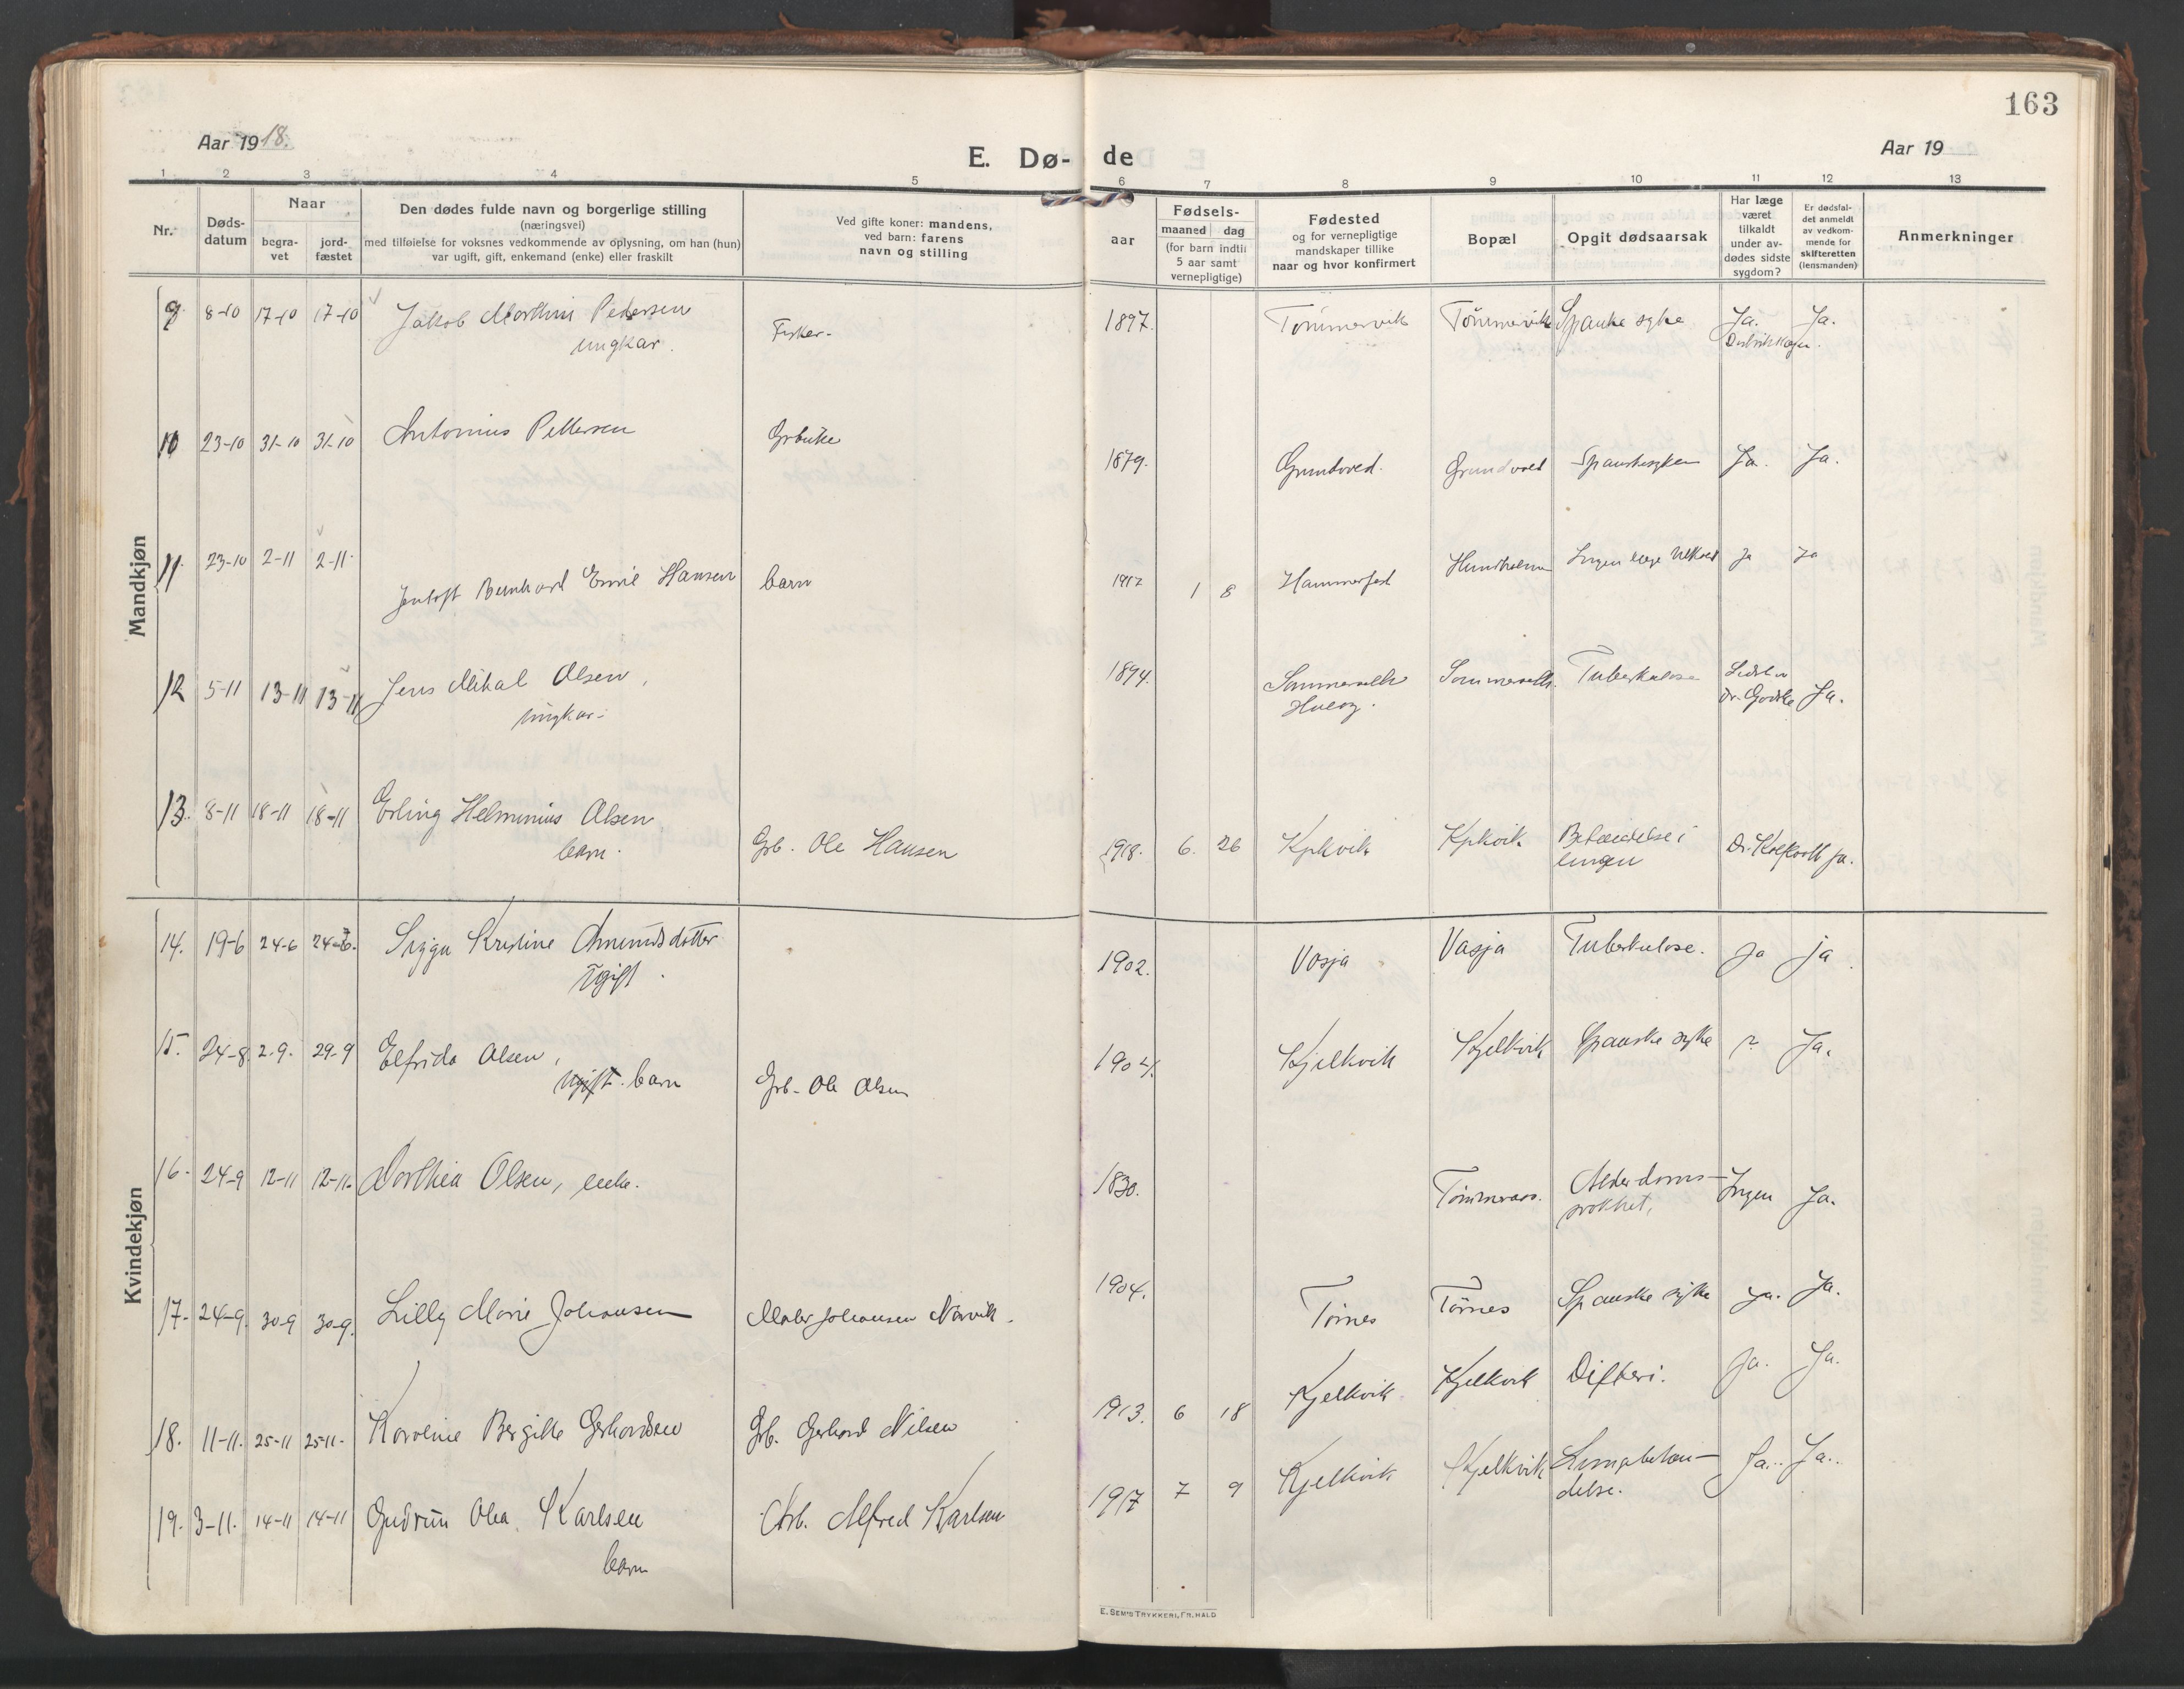 163
Aar 1918.
E. Dø- de
Aar 19
1 2 3 4 5 6 7 8 9 10 11 12 13
Nr.
Døds-
datum
Naar
begra-
vet
jord-
fæstet
Den dødes fulde navn og borgerlige stilling
(næringsvei)
med tilføielse for voksnes vedkommende av oplysning, om han (hun)
var ugift, gift, enkemand (enke) eller fraskilt
Ved gifte koner: mandens,
ved barn: farens
navn og stilling
aar
Fødsels-
maaned dag
(for barn indtil
5 aar samt
vernepligtige)
Fødested
og for vernepligtige
mandskaper tillike
naar og hvor konfirmert
Bopæl
Opgit dødsaarsak
Har læge
været
tilkaldt
under av-
dødes sidste
sygdom?
Er dødsfal-
det anmeldt
av vedkom-
mende for
skifteretten
(lensmanden)
Anmerkninger
Mandkjøn
9. 8-10 17-10 17-10 Jakob Martin Pedersen Fisker- 1897. Tømmervik Tømmervik Spanske syke Ja. Ja.
ungkar.
10 23-10 31-10 31-10 Antonius Pettersen Grbruker 1879. Grundvoed. Grundvoed Spanskesyken Ja. Ja.
11. 23-10 2-11 2-11. Bernhard Emil Hansen barn 1917 1 8 Hammerfest Hundholmen Ingen læge tilkaldt Ja Ja
12 5-11 13-11 13-11 Jens Mikal Olsen, 1894. Tuberkulose Dr. Godske Ja.
ungkar.
13. 8-11 18-11 18-11 Erling Helminius Olsen Grb. Ole Hansen 1918. 6. 26 Kjelkvik Kjelkvik Betændelse i Ja.
barn. lungen
Kvindekjøn
14. 19-6 24-6 24-6. Kristine Amundsdatter 1902. Vasja Vasja Tuberkulose. Ja Ja.
Ugift.
15. 24-8 2-9. 29-9 Elfrida Olsen, Grb. Ole Olsen 1904. Kjelkvik Kjelkvik Spanske syke ? Ja.
ugift. barn
16. 24-9 12-11 12-11. Dorthea Olsen, enke. 1830. Alderdoms- Ingen Ja.
svakhet.
17. 24-9. 30-9 30-9. Lilly Marie Johansen Maler Johansen Narvik. 1904. Tørnes Tørnes Spanske syke Ja. Ja.
18. 11-11. 25-11 25-11. Karoline Bergitte Gerhardsen Grb. Gerhard Nilsen 1913. 6 18 Kjelkvik Kjelkvik Difteri. Ja. Ja.
19. 3-11. 14-11 14-11 Gudrun Olea Karlsen Arb. Alfred Karlsen 1917 7 9 Kjelkvik Kjelkvik Lungebetæn- Ja. Ja.
barn delse.
E. SEM'S TRYKKERI, FR. HALD